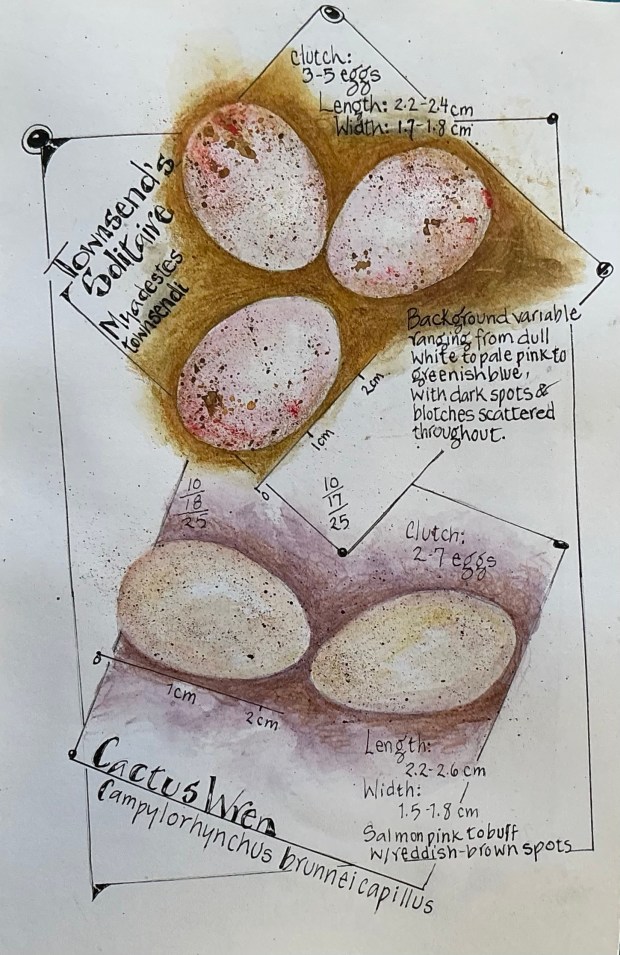 Clutch:
3-5 eggs
Length: 2.2-2.4cm
Width: 1.7-1.8 cm
Townsend's
Solitaire
Myadestes
townsendi
Background variable
ranging from dull
white to pale pink to
greenish blue,
with dark spots &
blotches scattered
throughout.
0
1cm
2cm
10
17
25
10
18
25
Clutch:
2-7 eggs
0
1cm
2cm
Length:
2.2-2.6 cm
Width:
1.5-1.8 cm
Salmon pink to buff
w/reddish-brown spots
Cactus Wren
Campylorhynchus brunneicapillus